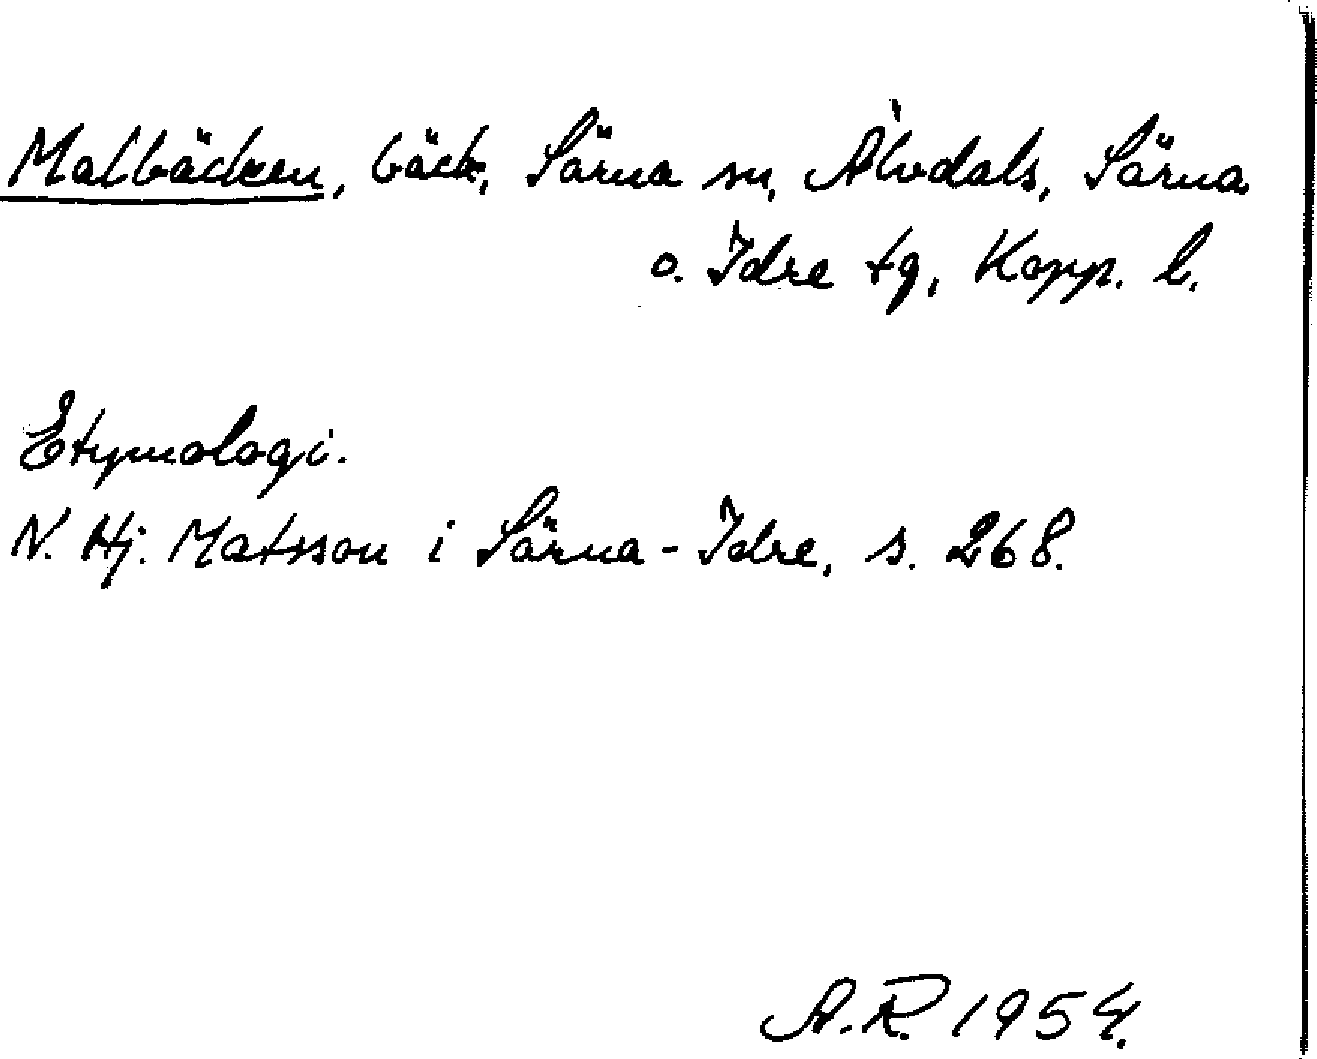 Malbäcken, bäck, Särna sn, Älvdals, Särna
o. Idre tg, Kopp. l.
Etymologi.
N. Hj. Matsson i Särna-Idre, s. 268.
A.R. 1954.